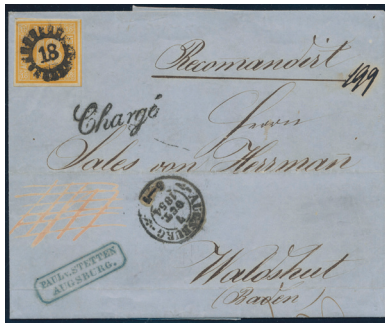 18
Recomandirt
199
Chargé
Herrn
Sales von Herrman
AUGSBURG
Waldshut
PAUL v. STETTEN
AUGSBURG.
(Baden)